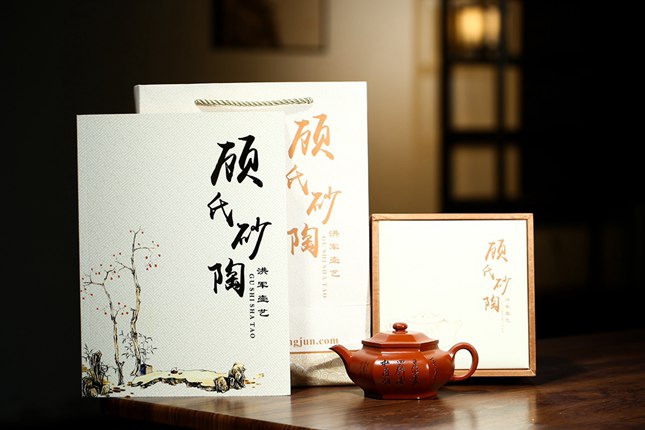 顾氏砂陶
洪军壶艺
GU SHI SHA TAO
顾氏砂陶
洪军壶艺
GU SHI SHA TAO
ngjun.com
顾氏砂陶